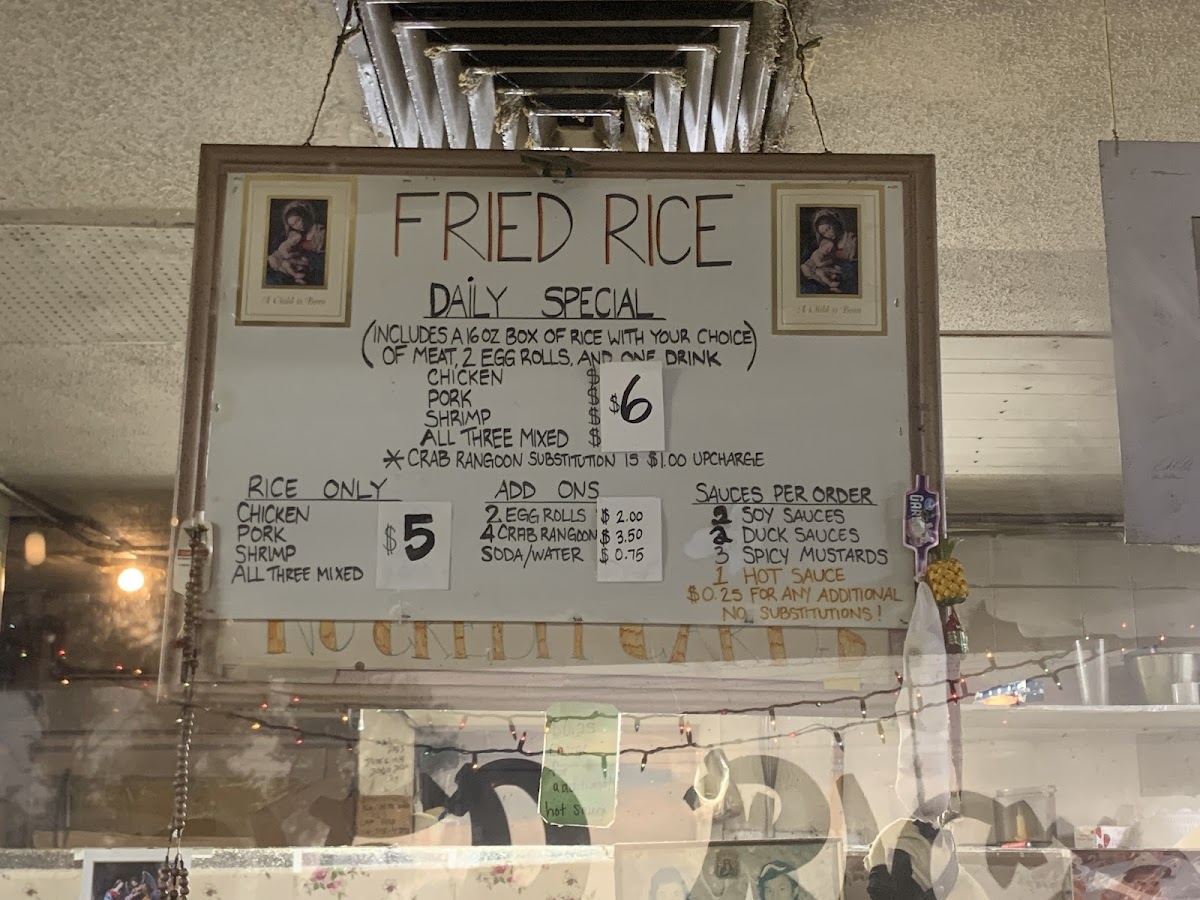 FRIED RICE
A Child is Born
A Child is Born
DAILY SPECIAL
(INCLUDES A 16 OZ BOX OF RICE WITH YOUR CHOICE
OF MEAT, 2 EGG ROLLS, AND ONE DRINK)
CHICKEN $
PORK $
SHRIMP $
ALL THREE MIXED $
$6
* CRAB RANGOON SUBSTITUTION IS $1.00 UPCHARGE
RICE ONLY
CHICKEN
PORK
SHRIMP
ALL THREE MIXED
$5
ADD ONS
2 EGG ROLLS $ 2.00
4 CRAB RANGOON $ 3.50
SODA/WATER $ 0.75
SAUCES PER ORDER
2 SOY SAUCES
2 DUCK SAUCES
3 SPICY MUSTARDS
1 HOT SAUCE
$0.25 FOR ANY ADDITIONAL
NO SUBSTITUTIONS!
NO CREDIT CARDS
hot